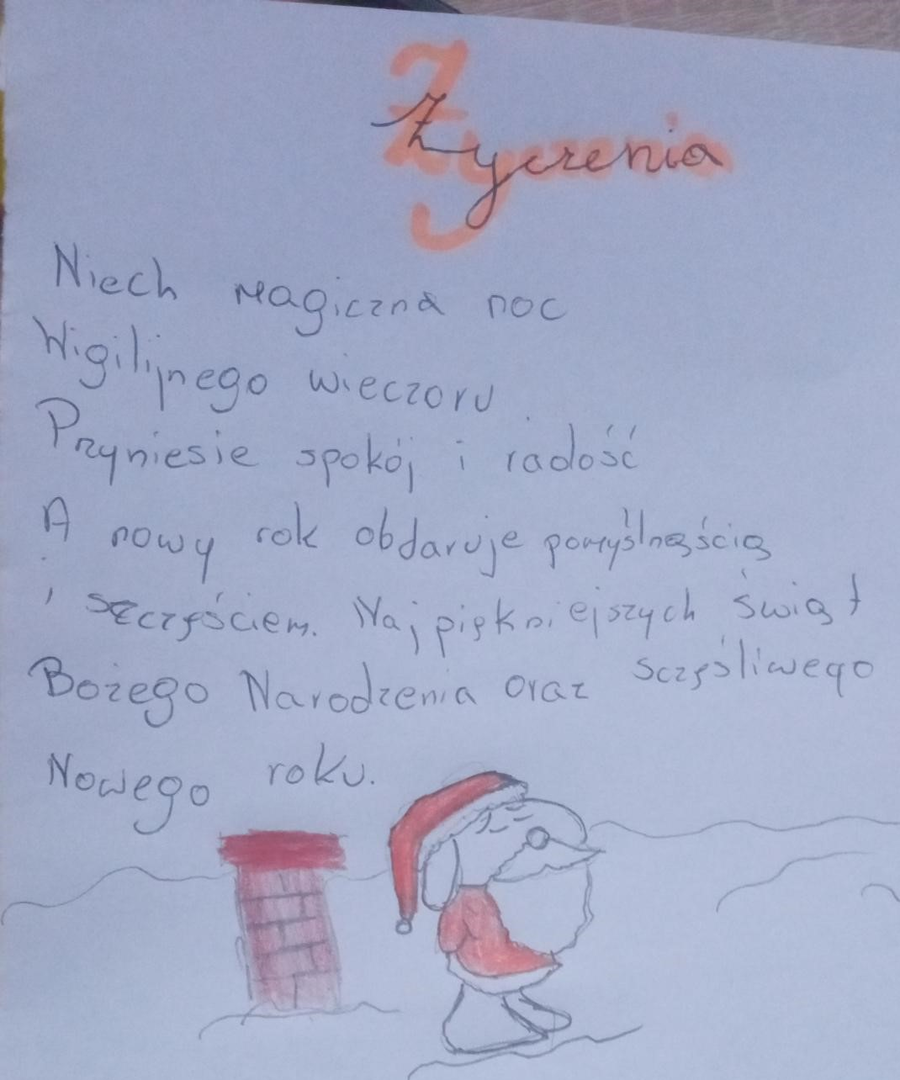 Życzenia
Niech magiczna noc
Wigilijnego wieczoru
Przyniesie spokój i radość
A nowy rok obdaruje pomyślnąścią
i szczęściem. Najpiękniejszych świąt
Bożego Narodzenia oraz sczęśliwego
Nowego roku.